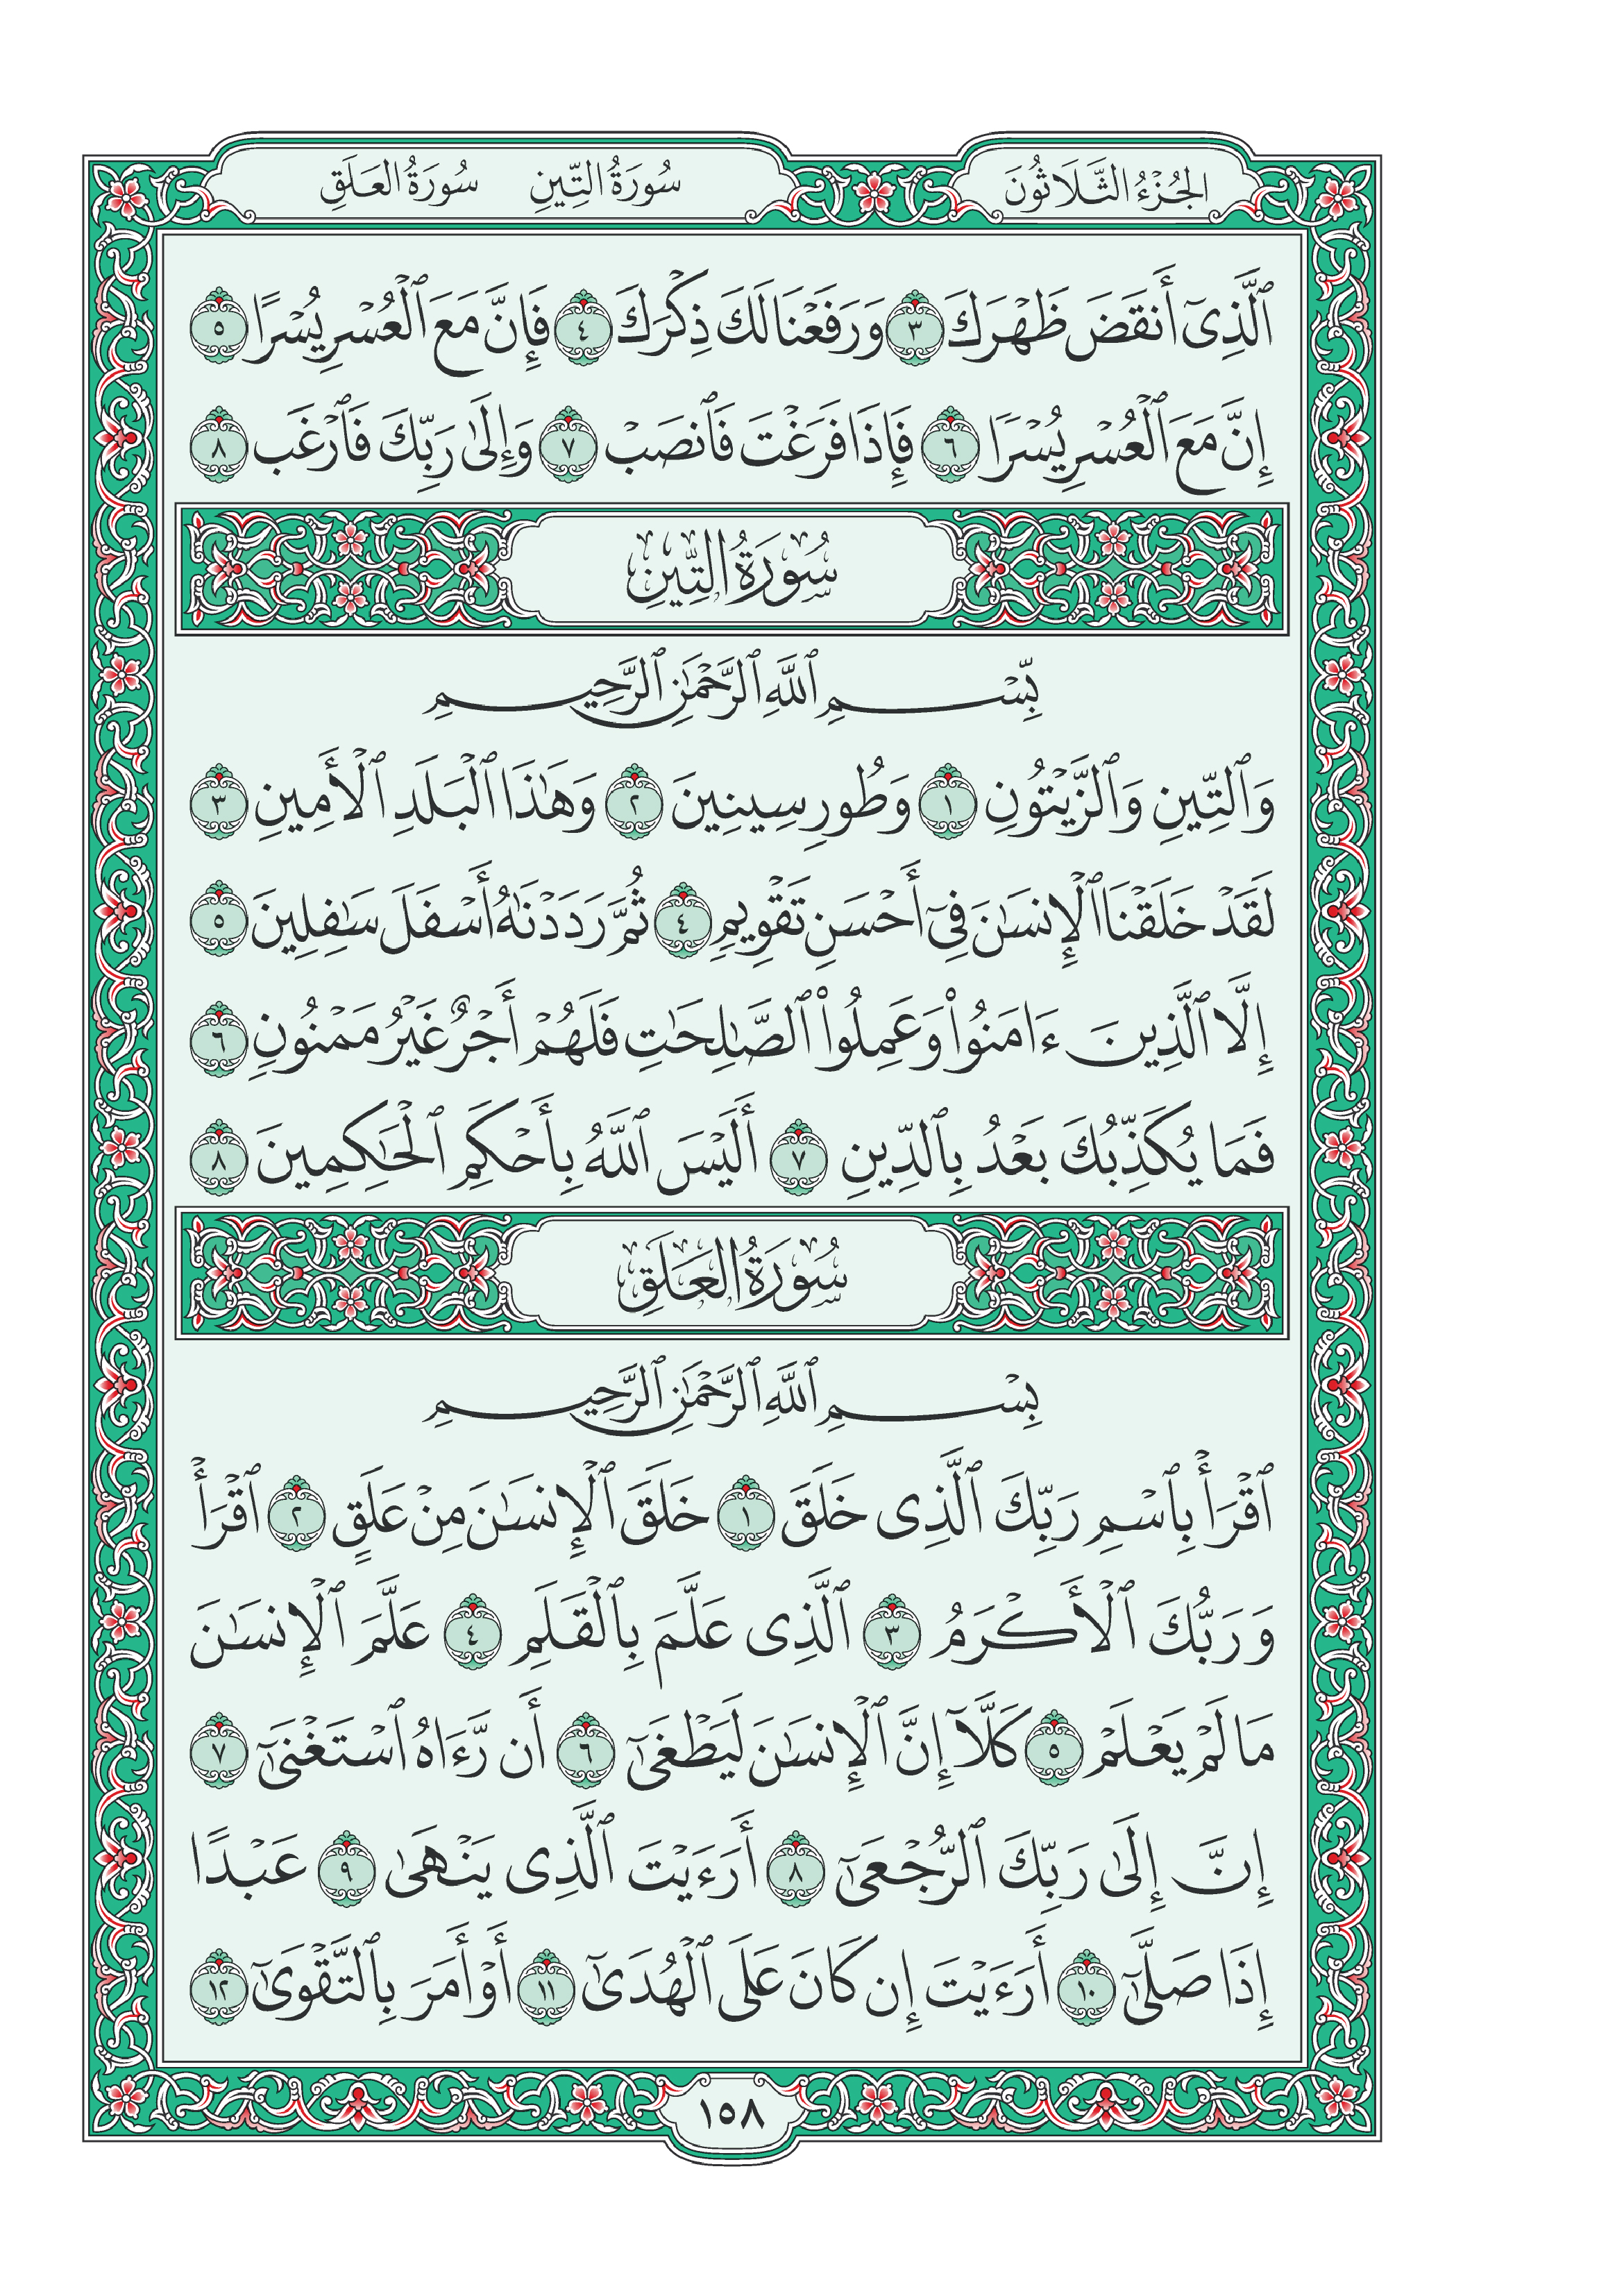 الجُزْءُ الثَّلَاثُونَ
سُورَةُ التِّينِ سُورَةُ العَلَقِ
ٱلَّذِىٓ أَنقَضَ ظَهْرَكَ ٣ وَرَفَعْنَا لَكَ ذِكْرَكَ ٤ فَإِنَّ مَعَ ٱلْعُسْرِ يُسْرًا ٥
إِنَّ مَعَ ٱلْعُسْرِ يُسْرًا ٦ فَإِذَا فَرَغْتَ فَٱنصَبْ ٧ وَإِلَىٰ رَبِّكَ فَٱرْغَب ٨
سُورَةُ التِّينِ
بِّسْمِ ٱللَّهِ ٱلرَّحْمَٰنِ ٱلرَّحِيمِ
وَٱلتِّينِ وَٱلزَّيْتُونِ ١ وَطُورِ سِينِينَ ٢ وَهَٰذَا ٱلْبَلَدِ ٱلْأَمِينِ ٣
لَقَدْ خَلَقْنَا ٱلْإِنسَٰنَ فِىٓ أَحْسَنِ تَقْوِيمٍ ٤ ثُمَّ رَدَدْنَٰهُ أَسْفَلَ سَٰفِلِينَ ٥
إِلَّا ٱلَّذِينَ ءَامَنُوا۟ وَعَمِلُوا۟ ٱلصَّٰلِحَٰتِ فَلَهُمْ أَجْرٌ غَيْرُ مَمْنُونٍ ٦
فَمَا يُكَذِّبُكَ بَعْدُ بِٱلدِّينِ ٧ أَلَيْسَ ٱللَّهُ بِأَحْكَمِ ٱلْحَٰكِمِينَ ٨
سُورَةُ العَلَقِ
بِسْمِ ٱللَّهِ ٱلرَّحْمَٰنِ ٱلرَّحِيمِ
ٱقْرَأْ بِٱسْمِ رَبِّكَ ٱلَّذِى خَلَقَ ١ خَلَقَ ٱلْإِنسَٰنَ مِنْ عَلَقٍ ٢ ٱقْرَأْ
وَرَبُّكَ ٱلْأَكْرَمُ ٣ ٱلَّذِى عَلَّمَ بِٱلْقَلَمِ ٤ عَلَّمَ ٱلْإِنسَٰنَ
مَا لَمْ يَعْلَمْ ٥ كَلَّآ إِنَّ ٱلْإِنسَٰنَ لَيَطْغَىٰٓ ٦ أَن رَّءَاهُ ٱسْتَغْنَىٰٓ ٧
إِنَّ إِلَىٰ رَبِّكَ ٱلرُّجْعَىٰٓ ٨ أَرَءَيْتَ ٱلَّذِى يَنْهَىٰ ٩ عَبْدًا
إِذَا صَلَّىٰٓ ١٠ أَرَءَيْتَ إِن كَانَ عَلَى ٱلْهُدَىٰٓ ١١ أَوْ أَمَرَ بِٱلتَّقْوَىٰٓ ١٢
١٥٨